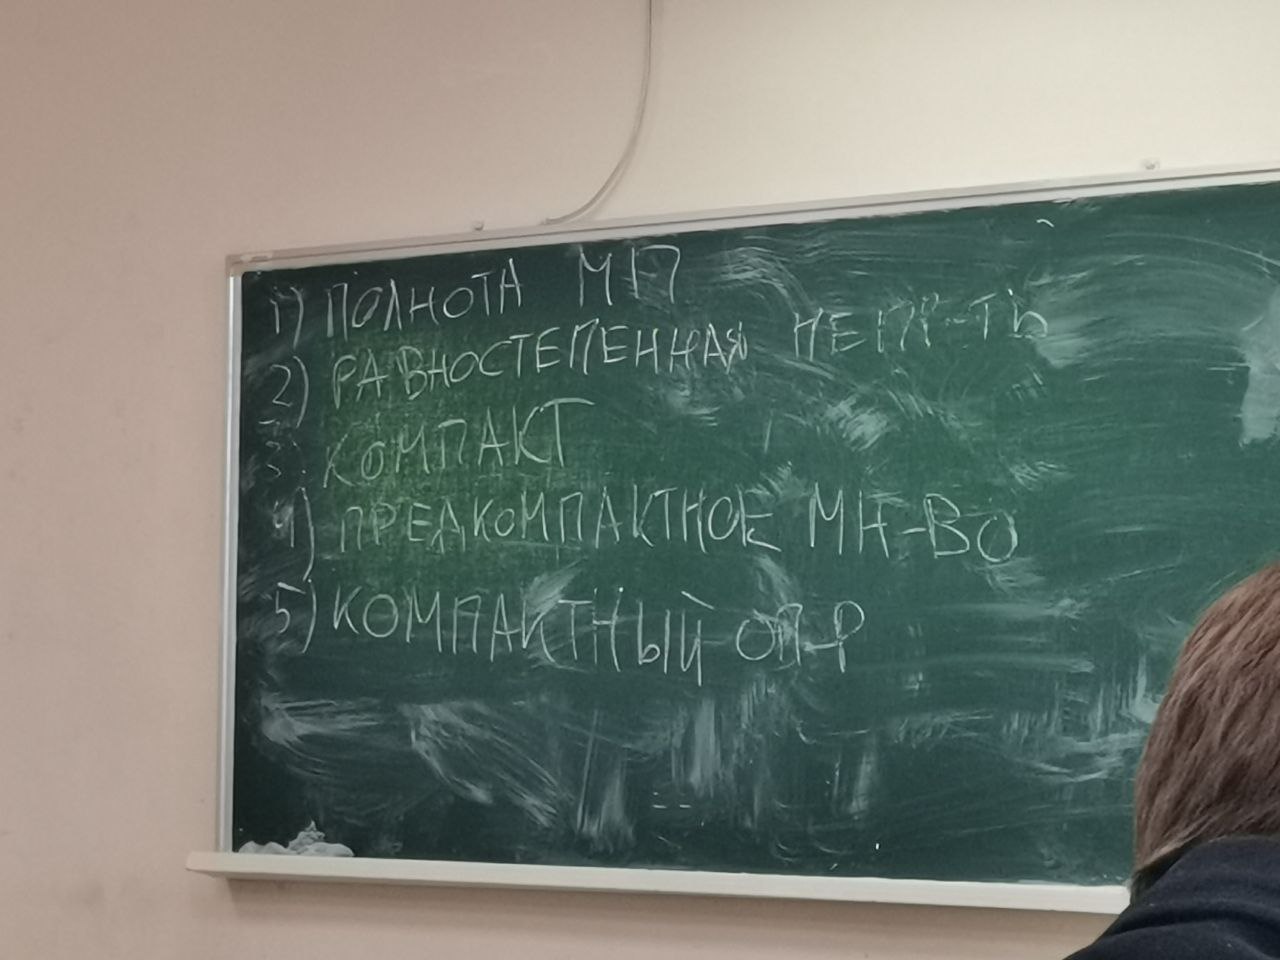 1) ПОЛНОТА МП
2) РАВНОСТЕПЕННАЯ НЕПР-ТЬ
3. КОМПАКТ
4) ПРЕДКОМПАКТНОЕ МН-ВО
5) КОМПАКТНЫЙ ОП-Р